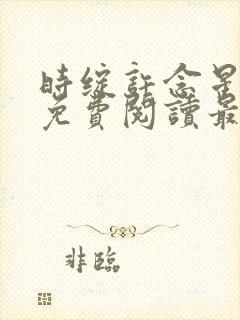 時綻許念星
免費閱讀最
非臨